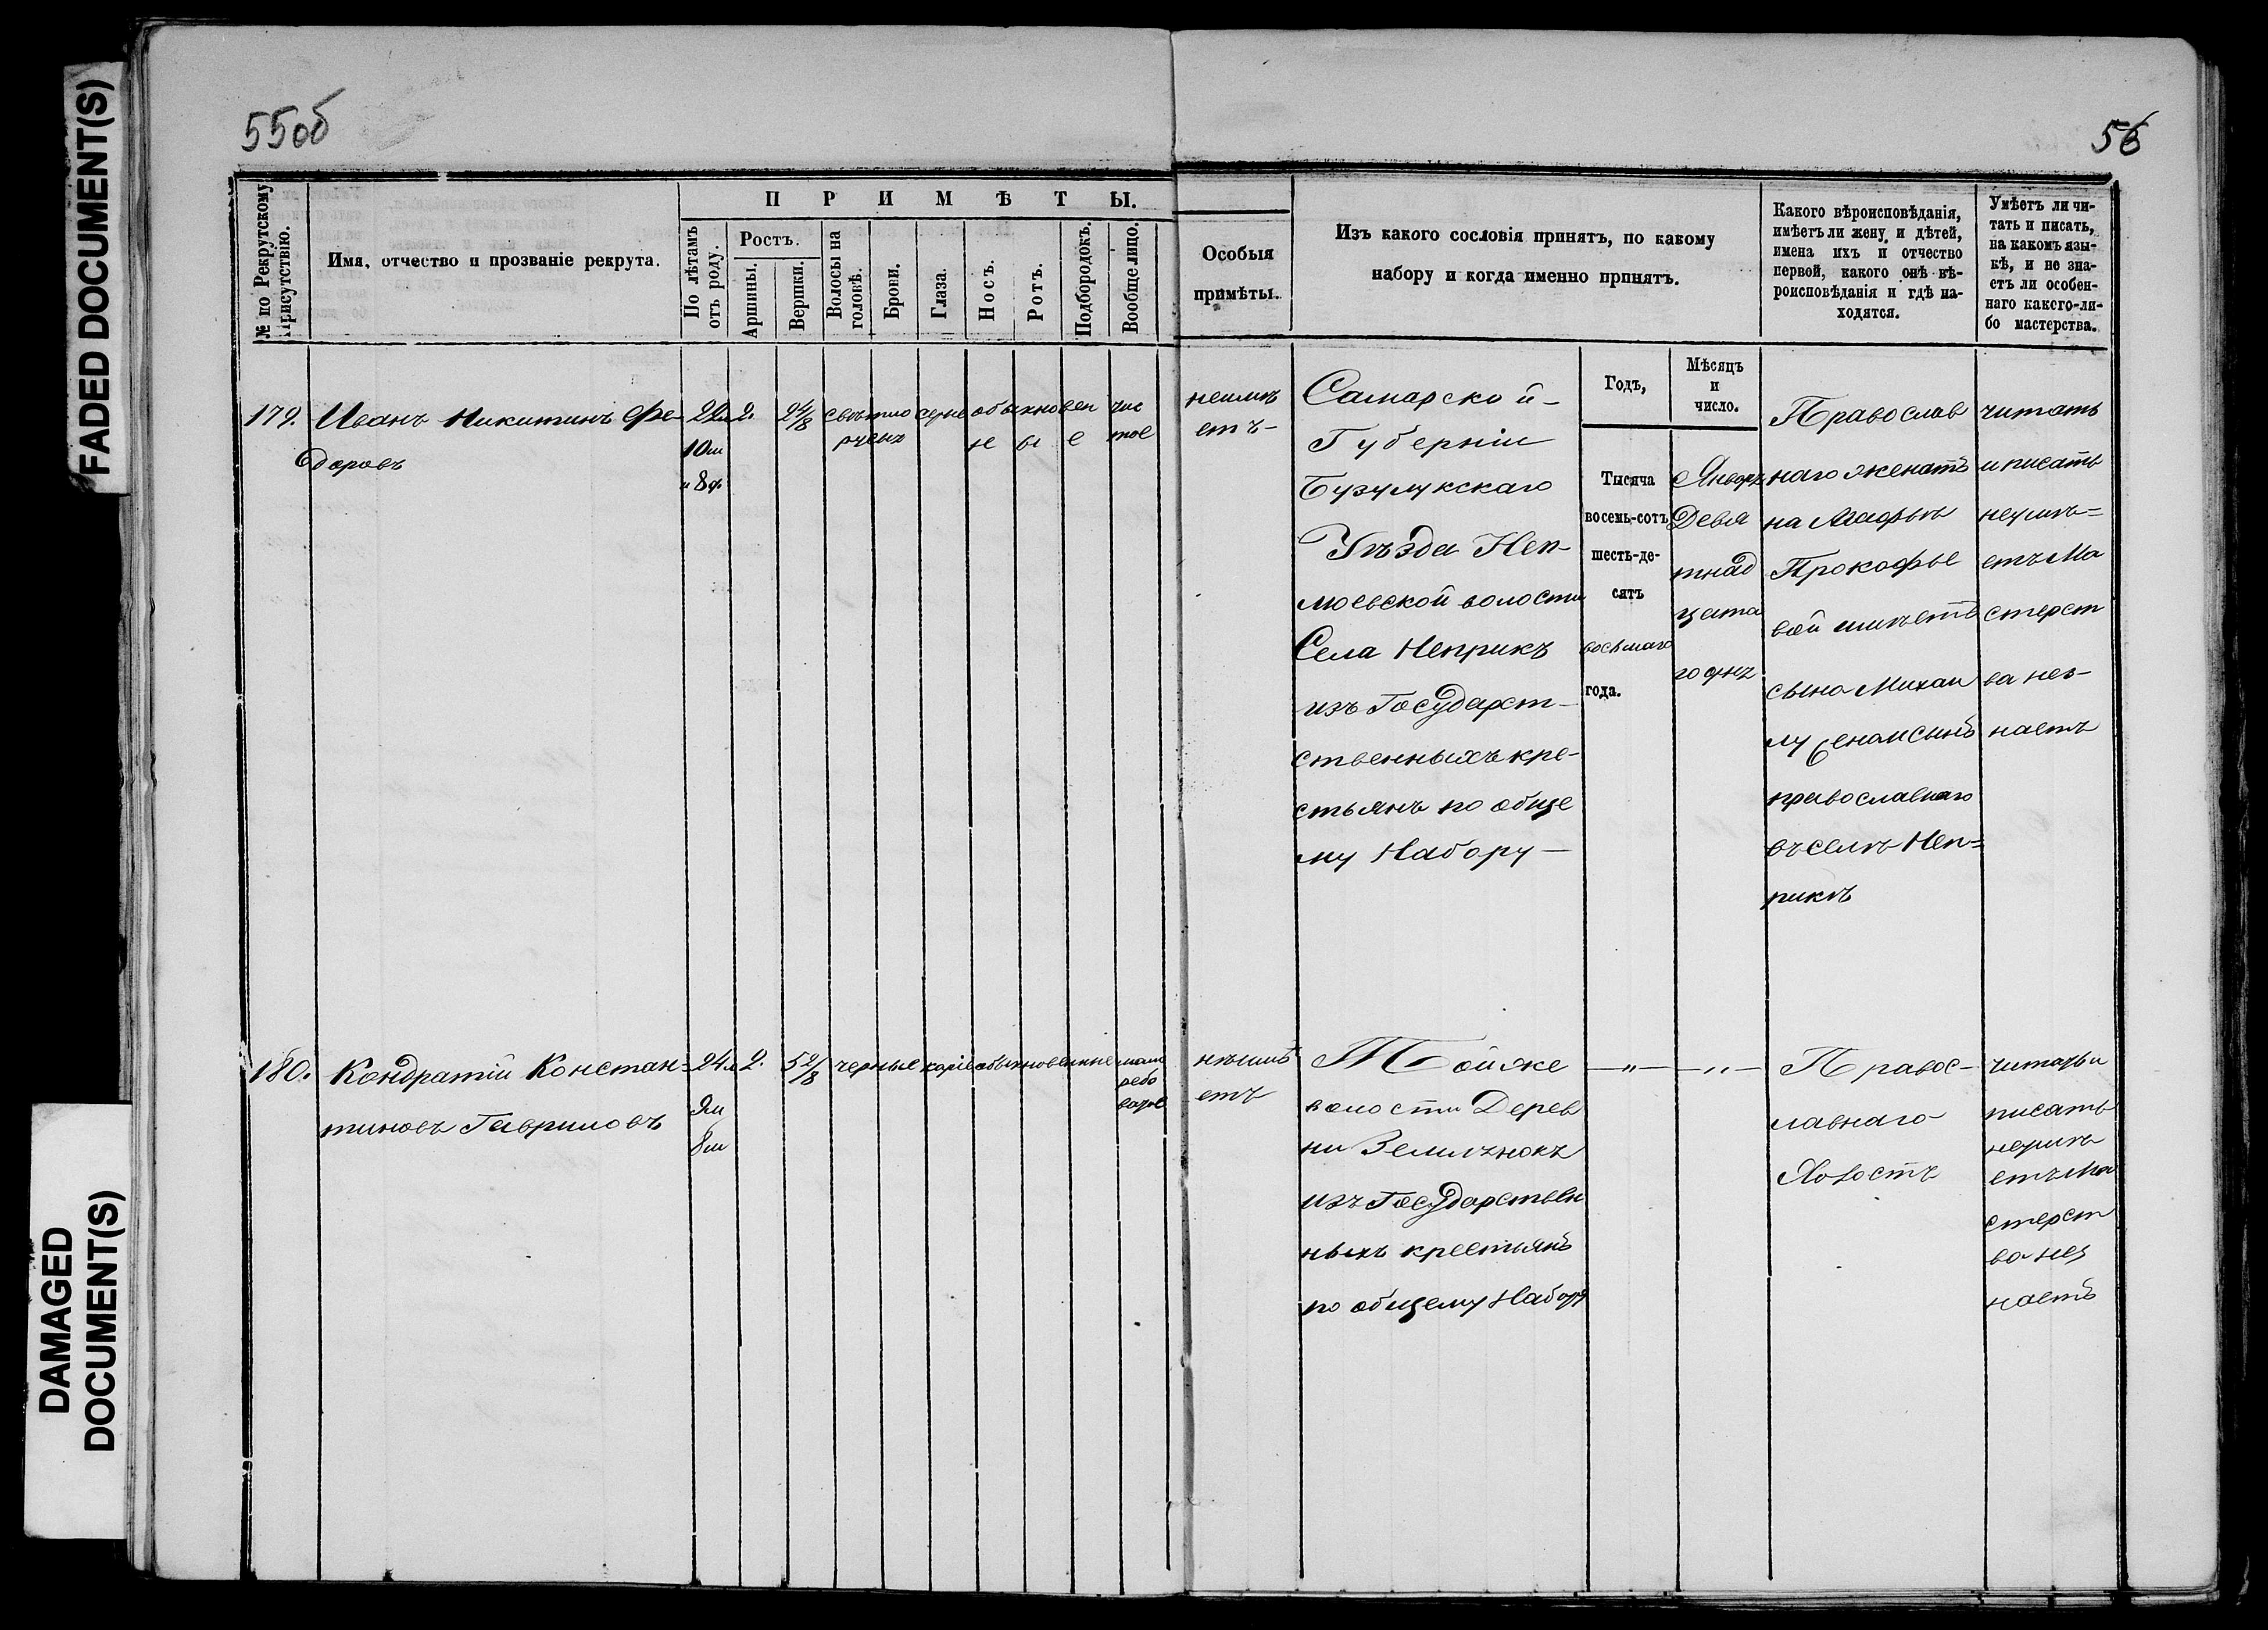 FADED DOCUMENT(S)
DAMAGED
DOCUMENT(S)
55об
56
№ по Рекрутскому
Присутствію.
Имя, отчество и прозваніе рекрута.
ПРИМѢТЫ.
По лѣтамъ
отъ роду.
Ростъ.
Аршины.
Вершки.
Волосы на
головѣ.
Брови.
Глаза.
Носъ.
Ротъ.
Подбородокъ.
Вообще лицо.
Особыя
примѣты.
Изъ какого сословія принятъ, по какому
набору и когда именно принятъ.
Какого вѣроисповѣданія,
имѣетъ ли жену и дѣтей,
имена ихъ и отчество
первой, какого онѣ вѣ-
роисповѣданія и гдѣ на-
ходятся.
Умѣетъ ли чи-
тать и писать,
на какомъ язы-
кѣ, и не зна-
етъ ли особен-
наго какого-ли-
бо мастерства.
Годъ,
Мѣсяцъ
и
число.
179.
Иванъ Никитинъ Фе-
доровъ
22л
10м
и 8д.
2.
2 4/8
свѣтло
русых
серые
обыкновен
ные
чис
тое
неимѣ
етъ-
Самарской-
Губерніи
Бузулукскаго
Уѣзда Неп-
люевской волости
Села Неприкъ
изъ Государст-
ственныхъ кре-
стьянъ по обще
му Набору-
Тысяча
восемь-сотъ
шесть-де-
сятъ
восьмаго
года.
Январь
Девя
тнад
цата
го днz
Православ
наго женатъ
на Агафьѣ
Прокофье
вой имѣетъ
сына Михаи
лу женаисынъ
православнаго
въселѣ Неп=
рикѣ
читать
и писать
неумѣ=
етъ Ма
стерст
ва нез-
наетъ
180.
Кондратій Констан=
тиновъ Гавриловъ
24л
9м
2.
5 2/8
черные
каріе
обыкновенные
неимѣ
етъ
Тойже
волости Дерев
ни
изъ Государствен
ныхъ крестьянъ
по общему Набору
—"—
—"—
Правос-
лавнаго
Холостъ
читать и
писать
неумѣ
етъ Ма
стерст
ва нез
наетъ